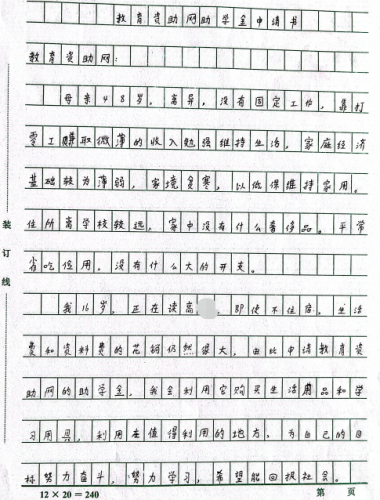 教育资助网助学金申请书
教育资助网：
母亲48岁，离异，没有固定工作，靠打
零工赚取微薄的收入勉强维持生活，家庭经济
基础较为薄弱，家境贫寒，以低保维持家用。
住所离学校较远，家中没有什么奢侈品。平常
省吃俭用，没有什么大的开支。
我16岁，正在读高，即使不住宿，生活
费和资料费的花销仍然很大，由此申请教育资
助网的助学金，我会利用它购买生活用品和学
习用具，利用在值得利用的地方，为自己的目
标努力奋斗，努力学习，希望能回报社会。
装订线
12×20=240
第 页